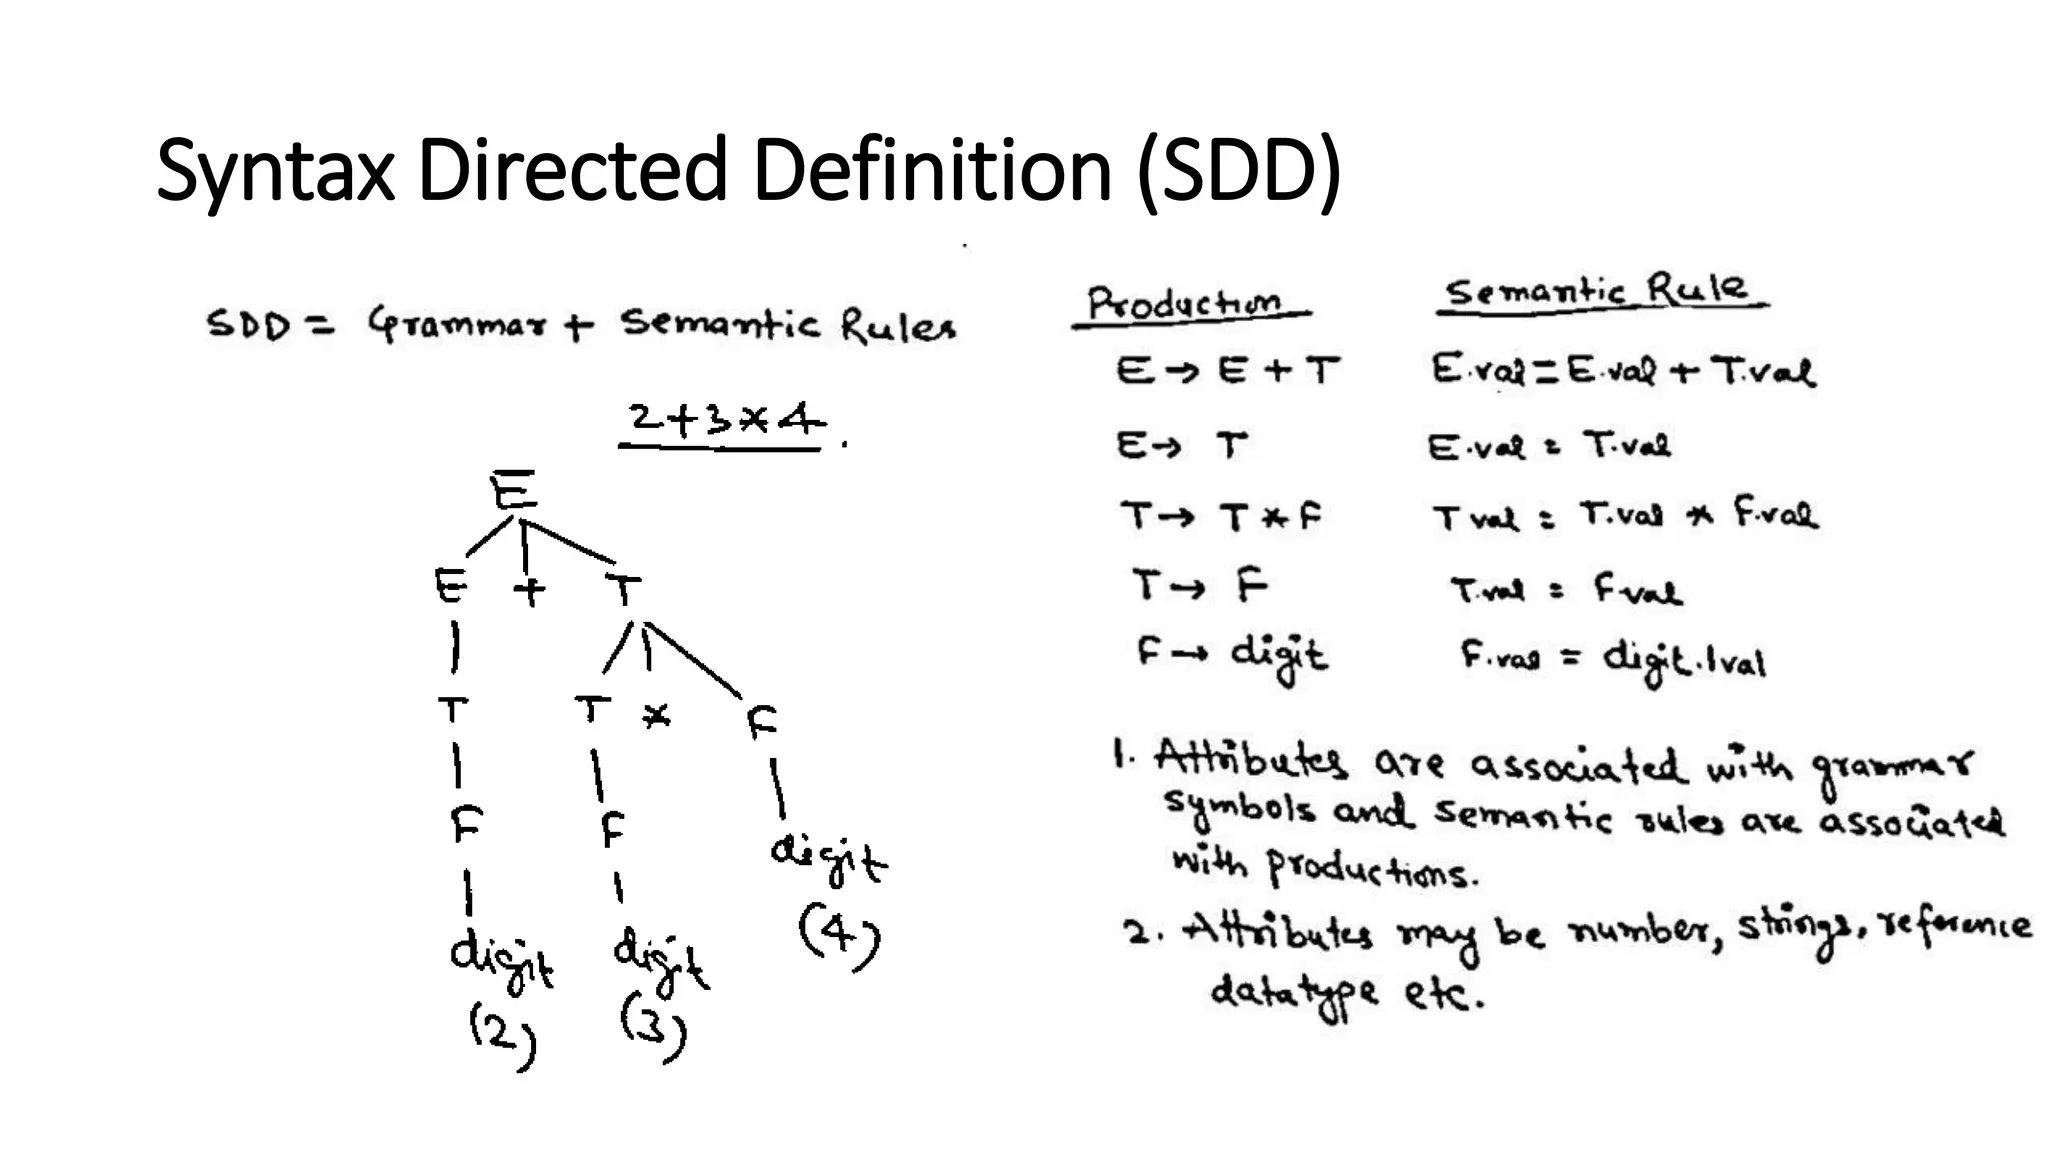 Syntax Directed Definition (SDD)
SDD = Grammar + Semantic Rules
2+3*4.
E
E + T
T T * F
F F digit
digit digit (4)
(2) (3)
Production Semantic Rule
E → E + T E.val = E.val + T.val
E → T E.val = T.val
T → T * F T val = T.val * F.val
T → F T.val = F.val
F → digit F.val = digit.lval
1. Attributes are associated with grammar
symbols and semantic rules are associated
with productions.
2. Attributes may be number, strings, reference
datatype etc.